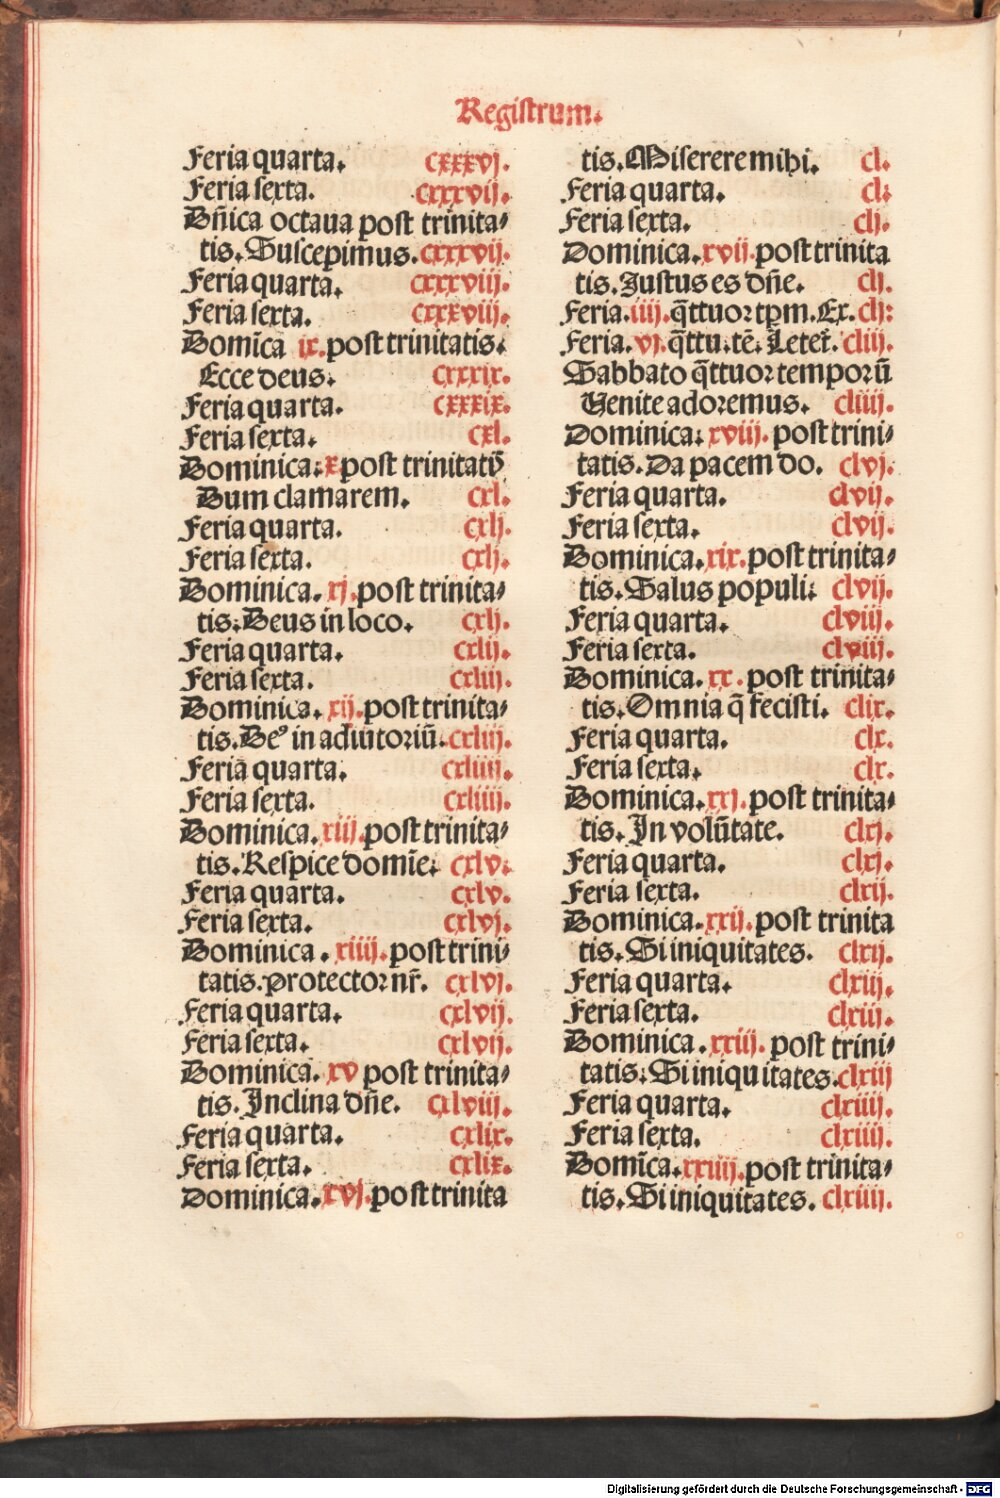 Registrum.
Feria quarta. cxxxvj.
Feria sexta. cxxxvij.
Dñica octaua post trinita⸗
tis. Suscepimus. cxxxvij.
Feria quarta. cxxxviij.
Feria sexta. cxxxviij.
Domīca ix. post trinitatis.
Ecce deus. cxxxix.
Feria quarta. cxxxix.
Feria sexta. cxl.
Dominica. x post trinitatꝭ
Dum clamarem. cxl.
Feria quarta. cxlj.
Feria sexta. cxlj.
Dominica. xj. post trinita⸗
tis. Deus in loco. cxlj.
Feria quarta. cxlij.
Feria sexta. cxliij.
Dominica. xij. post trinita⸗
tis. Deꝰ in adiutoriū. cxliij.
Feria quarta. cxliiij.
Feria sexta. cxliiij.
Dominica. xiij. post trinita⸗
tis. Respice domīe. cxlv.
Feria quarta. cxlv.
Feria sexta. cxlvj.
Dominica. xiiij. post trini⸗
tatis. protector nr̄. cxlvj.
Feria quarta. cxlvij.
Feria sexta. cxlvij.
Dominica. xv post trinita⸗
tis. Inclina dn̄e. cxlviij.
Feria quarta. cxlix.
Feria sexta. cxlix.
Dominica. xvj. post trinita
tis. Miserere mihi. cl.
Feria quarta. cl:
Feria sexta. clj.
Dominica. xvij. post trinita
tis. Justus es dn̄e. clj.
Feria. iiij. q̄ttuor tp̄m. Ex. clij:
Feria. vj. q̄ttu. tē. Letet̄. cliij.
Sabbato q̄ttuor temporū
Venite adoremus. cliiij.
Dominica: xviij. post trini⸗
tatis. Da pacem do. clvj.
Feria quarta. clvij.
Feria sexta. clvij.
Dominica. xix. post trinita⸗
tis. Salus populi: clvij.
Feria quarta. clviij.
Feria sexta. clviij.
Dominica. xx. post trinita⸗
tis. Omnia q̄ fecisti. clix.
Feria quarta. clx.
Feria sexta. clx.
Dominica. xxj. post trinita⸗
tis. In volūtate. clxj.
Feria quarta. clxj.
Feria sexta. clxij.
Dominica. xxij. post trinita
tis. Si iniquitates. clxij.
Feria quarta. clxiij.
Feria sexta. clxiij.
Dominica. xxiij. post trini⸗
tatis. Si iniquitates. clxiij
Feria quarta. clxiiij.
Feria sexta. clxiiij.
Domīca. xxiiij. post trinita⸗
tis. Si iniquitates. clxiiij.
Digitalisierung gefördert durch die Deutsche Forschungsgemeinschaft - DFG